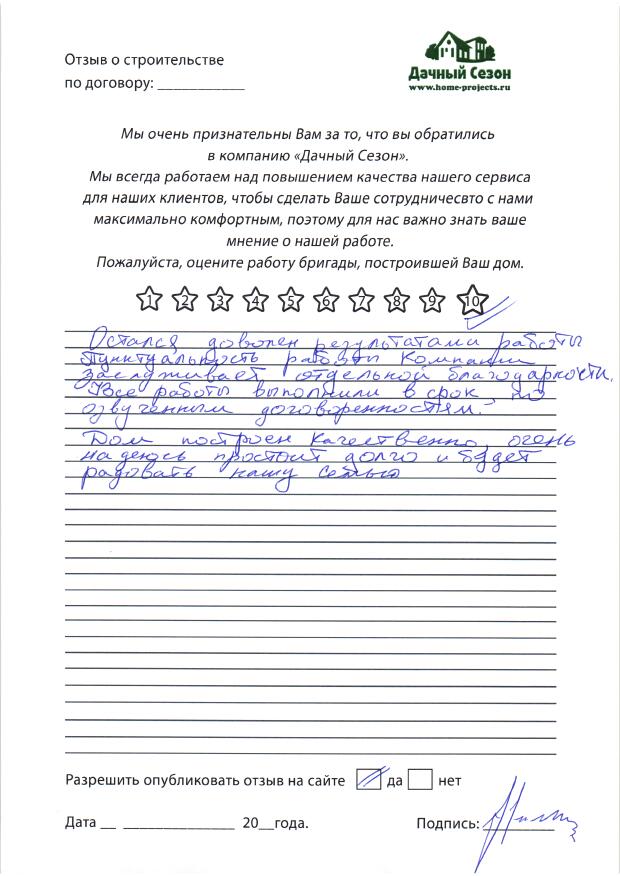 Отзыв о строительстве
по договору: ___________
Дачный Сезон
www.home-projects.ru
Мы очень признательны Вам за то, что вы обратились
в компанию «Дачный Сезон».
Мы всегда работаем над повышением качества нашего сервиса
для наших клиентов, чтобы сделать Ваше сотрудничесвто с нами
максимально комфортным, поэтому для нас важно знать ваше
мнение о нашей работе.
Пожалуйста, оцените работу бригады, построившей Ваш дом.
1 2 3 4 5 6 7 8 9 10
Остался доволен результатами работы
Пунктуальность работы Компании
заслуживает отдельной благодарности.
Все работы выполнили в срок, по
озвученным договоренностям.
Дом построен качественно, очень
надеюсь простоит долго и будет
радовать нашу семью
Разрешить опубликовать отзыв на сайте да нет
Дата __ ______________ 20__года.
Подпись: _________